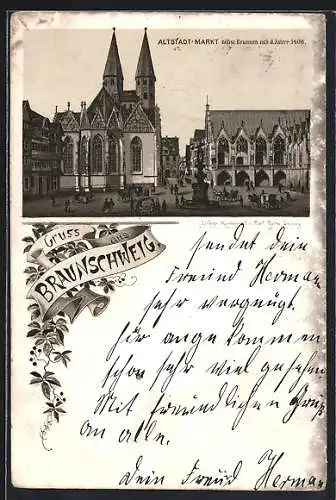 ALTSTADT-MARKT nebst Brunnen aus d. Jahre 1408.
Gruss aus
BRAUNSCHWEIG.
sendet dein
Freund Herman
sehr vergnügt.
für ange kommen
schon sehr viel gesehen
Mit freundlichen Gruß
an alle.
Dein Freud Herman